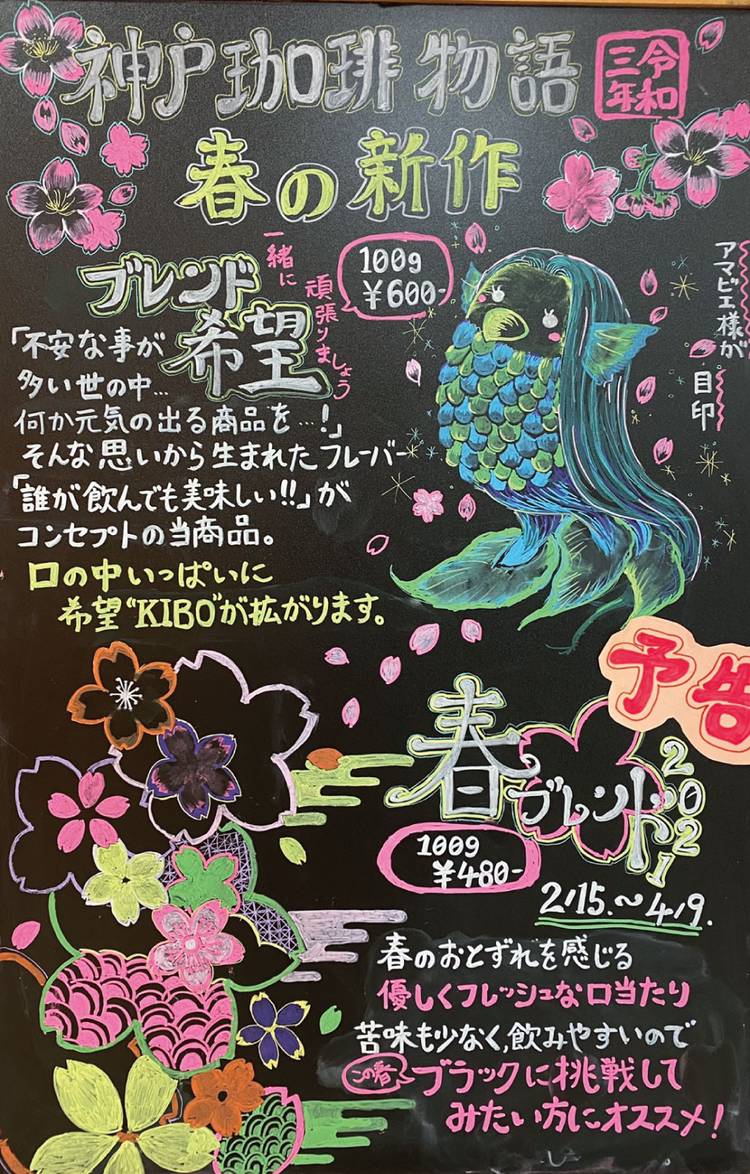 神戸珈琲物語
令和
三年
春の新作
ブレンド
希望
一緒に
頑張りましょう
100g
¥600-
アマビエ様が
目印
「不安な事が
多い世の中…
何か元気の出る商品を…!」
そんな思いから生まれたフレーバー
「誰が飲んでも美味しい!!」が
コンセプトの当商品。
口の中いっぱいに
希望“KIBO”が拡がります。
予告
春ブレンド
2021
100g
¥480-
2/15.～4/9.
春のおとずれを感じる
優しくフレッシュな口当たり
苦味も少なく,飲みやすいので
この春
ブラックに挑戦して
みたい方にオススメ!